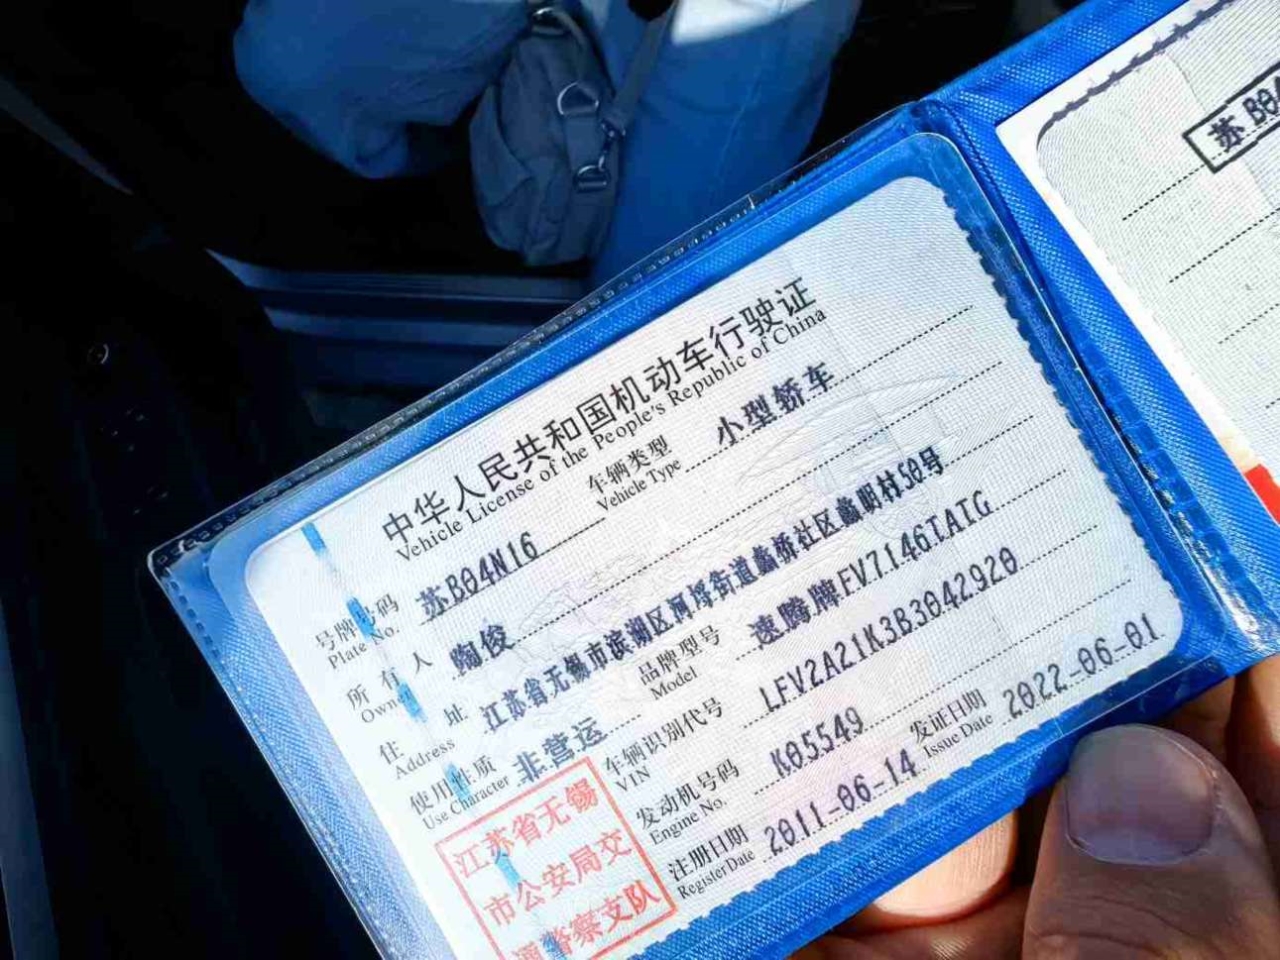 中华人民共和国机动车行驶证
Vehicle License of the People's Republic of China
号牌号码 苏B04N16 车辆类型 小型轿车
Plate No. Vehicle Type
所有人 陶俊
Owner
住址 江苏省无锡市滨湖区河埒街道蠡桥社区蠡明村50号
Address
使用性质 非营运 品牌型号 速腾牌FV7146TATG
Use Character Model
车辆识别代号 LFV2A21K3B3042920
VIN
发动机号码 K05549 发证日期 2022-06-01
Engine No. Issue Date
注册日期 2011-06-14
Register Date
江苏省无锡
市公安局交
通警察支队
苏B0